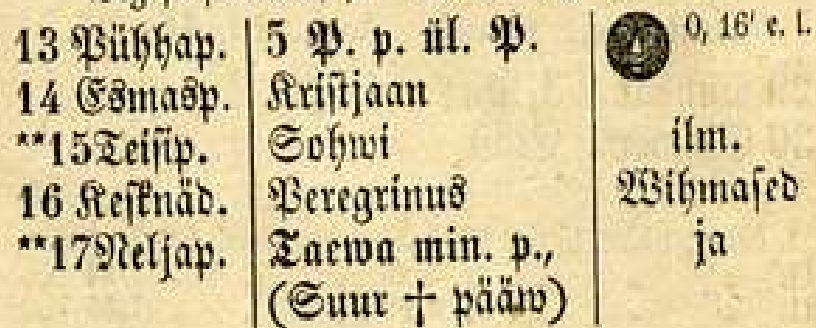 13 Pühhap. 5 P. p. ül. P. 0, 16' e. l.
14 Esmasp. Kristjaan
**15 Teisip. Sohwi ilm.
16 Kesknäd. Peregrinus Wihmased
**17 Neljap. Taewa min. p., ja
(Suur † pääw)